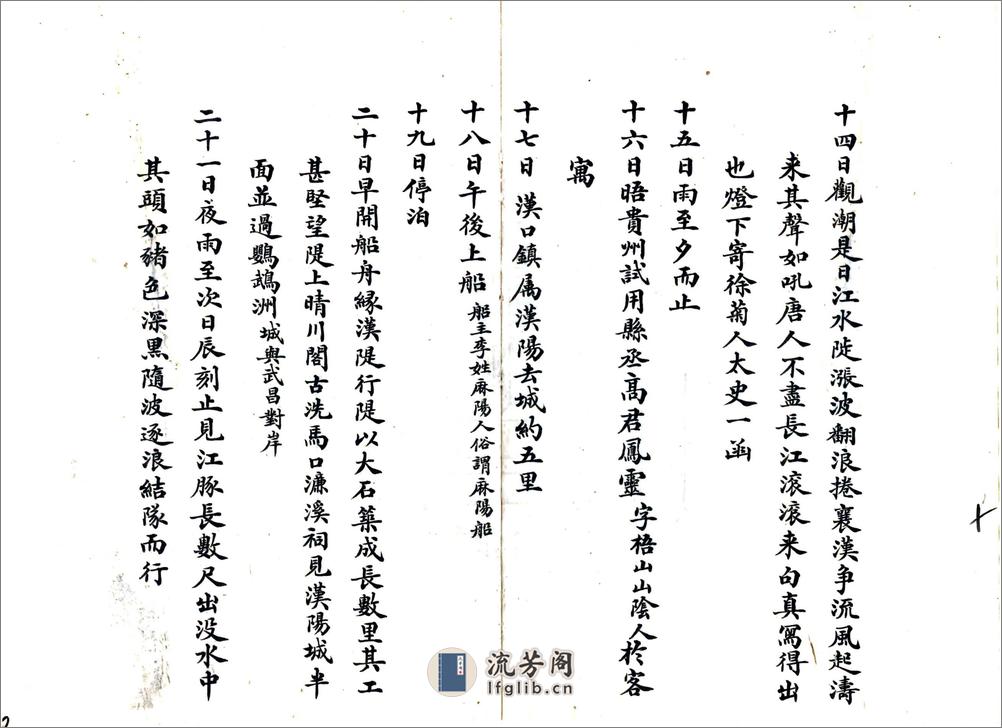 十四日觀潮是日江水陡漲波翻浪捲襄漢争流風起濤
来其聲如吼唐人不盡長江滚滚来句真寫得出
也燈下寄徐菊人太史一函
十五日雨至夕而止
十六日晤貴州試用縣丞高君鳳靈字梧山山陰人於客
寓
十七日 漢口鎮属漢陽去城約五里
十八日午後上船船主李姓麻陽人俗謂麻陽船
十九日停泊
二十日早開船舟緣漢隄行隄以大石築成長數里其工
甚堅望隄上晴川閣古洗馬口濂溪祠見漢陽城半
面並過鸚鵡洲城與武昌對岸
二十一日夜雨至次日辰刻止見江豚長數尺出没水中
其頭如豬色深黑隨波逐浪結隊而行
十
流芳阁
lfglib.cn
2